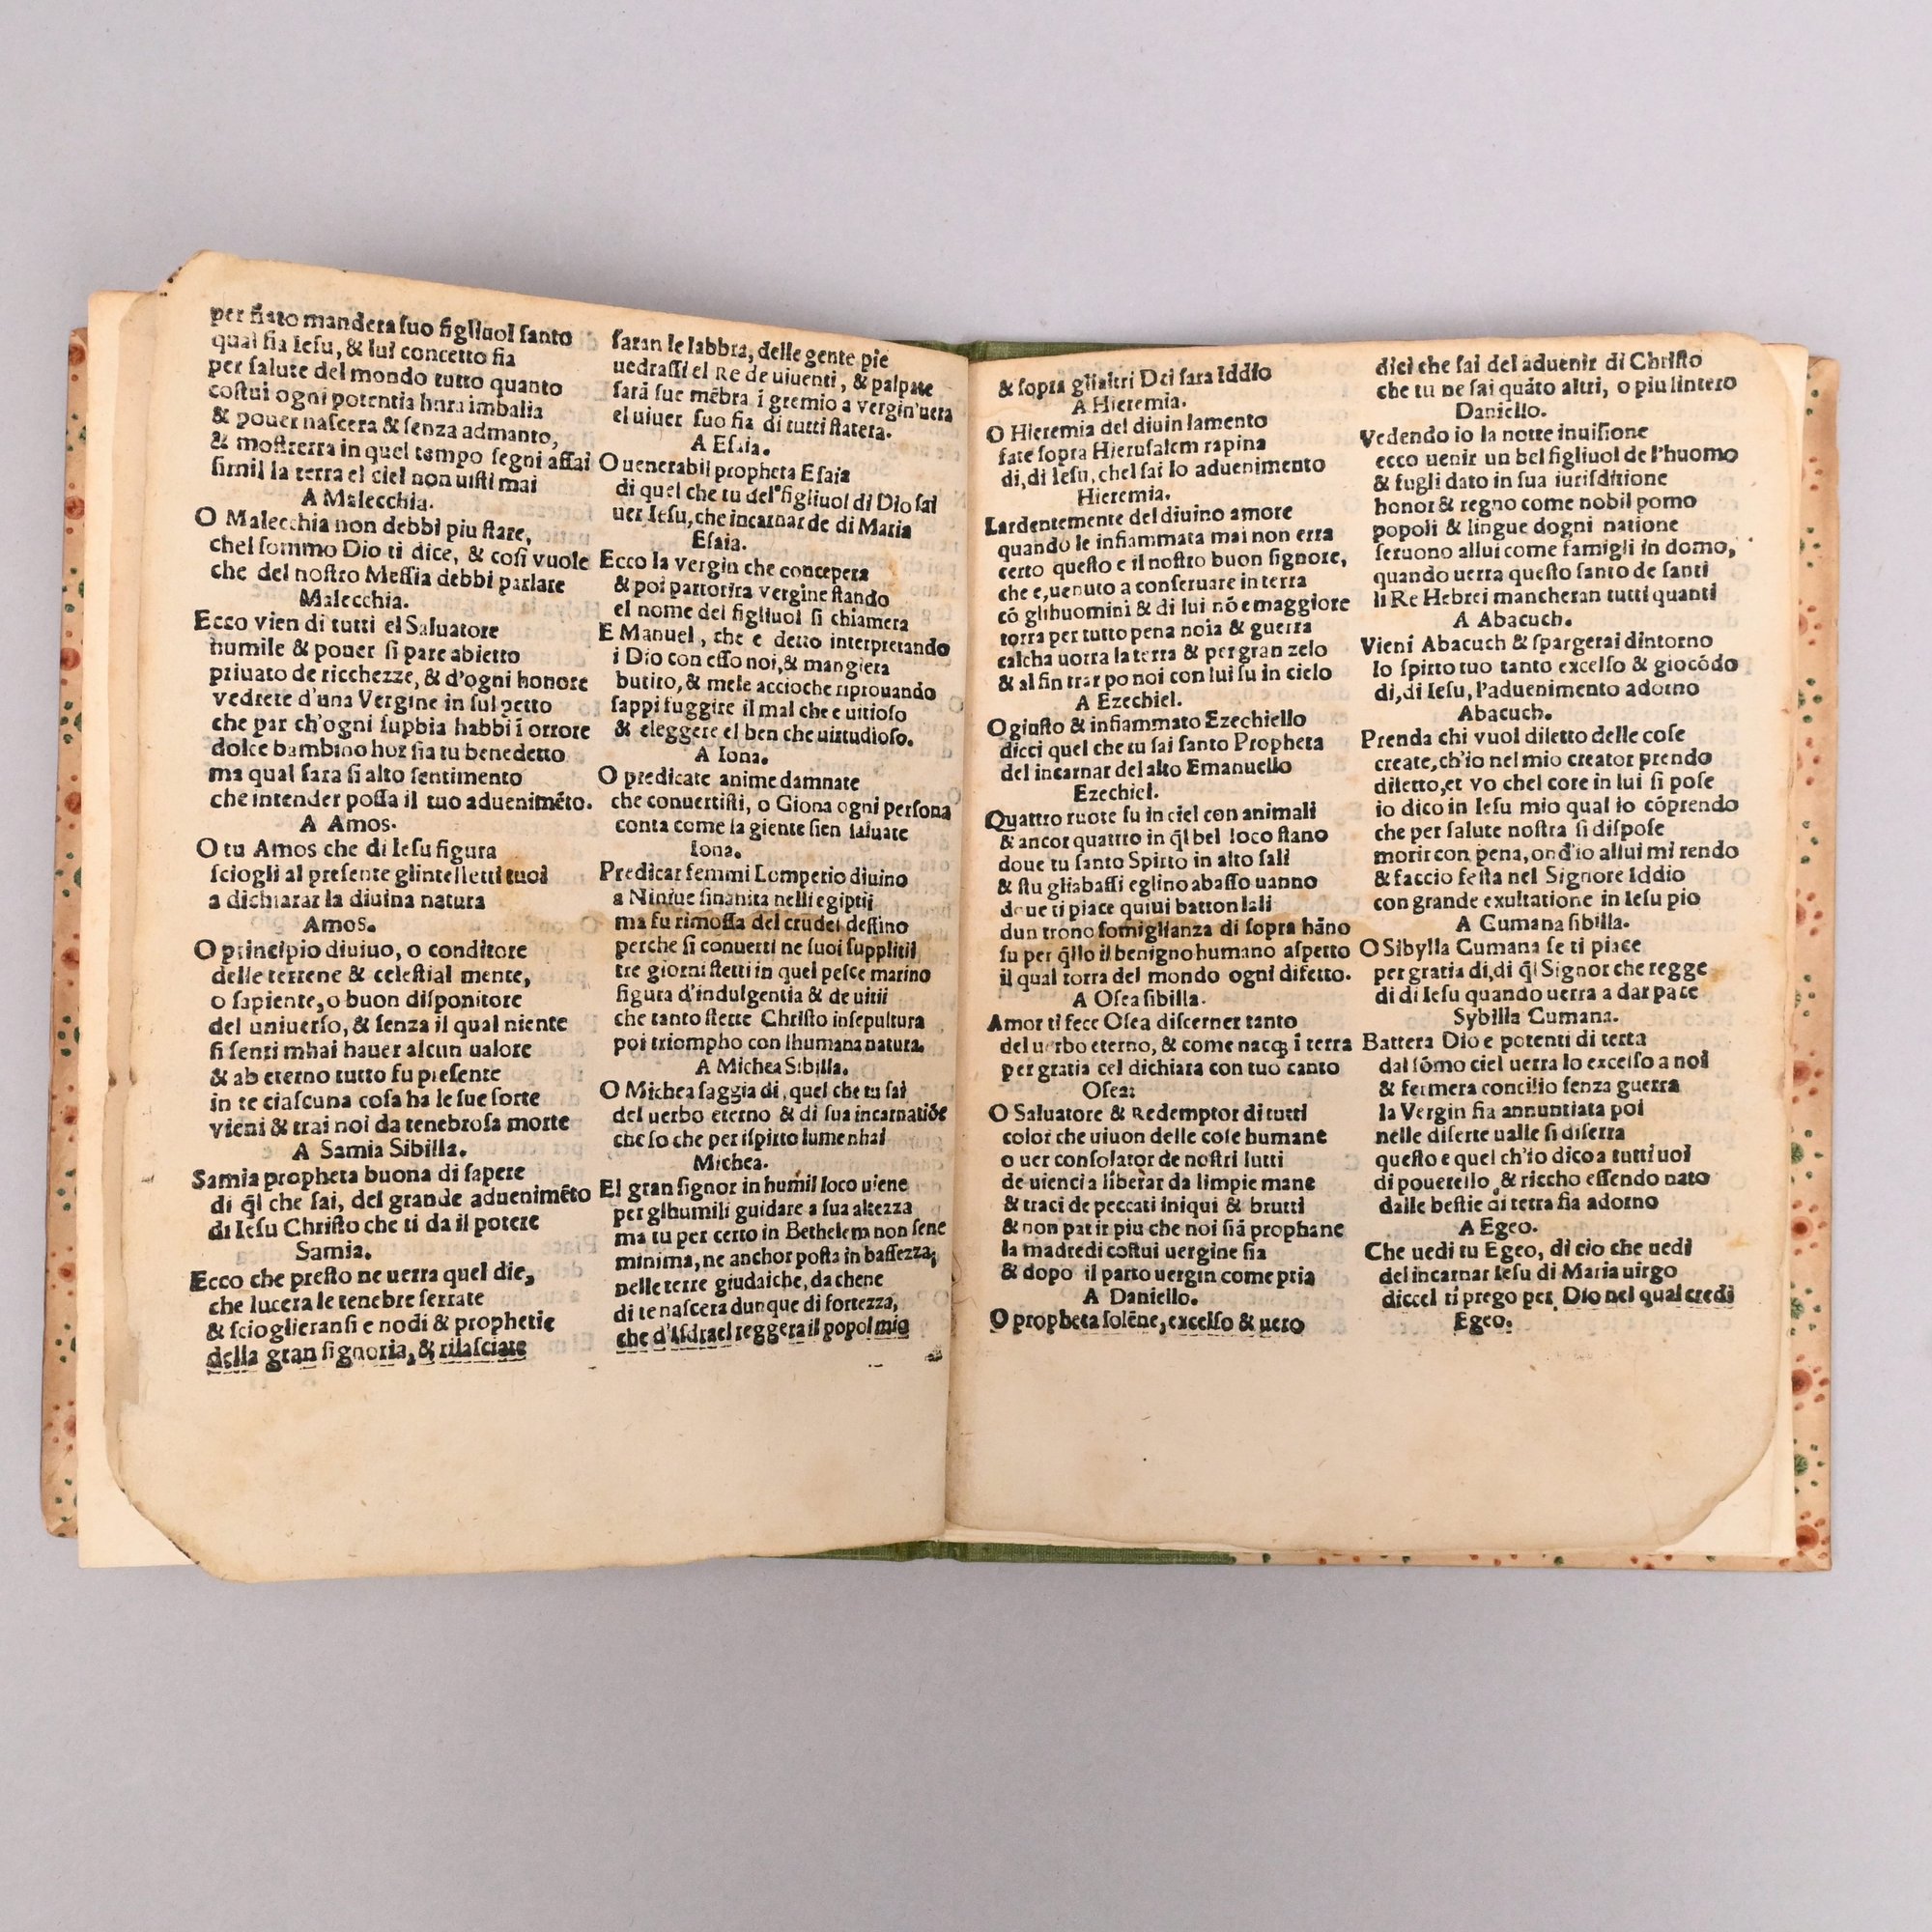 per fiato mandera ſuo figliuol ſanto
qual fia Ieſu, & lui concetto fia
per ſalute del mondo tutto quanto
coſtui ogni potentia hara imbalia
& pouer naſcera & ſenza admanto,
& moſtrerra in quel tempo ſegni aſſai
ſimil la terra el ciel non uiſti mai
A Malecchia.
O Malecchia non debbi piu ſtare,
chel ſommo Dio ti dice, & coſi vuole
che del noſtro Meſſia debbi parlare
Malecchia.
Ecco vien di tutti el Saluatore
humile & pouer ſi pare abietto
priuato de ricchezze, & d'ogni honore
vedrete d'una Vergine in ſul petto
che par ch'ogni ſupbia habbi ĩ orrore
dolce bambino hor ſia tu benedetto
ma qual ſara ſi alto ſentimento
che intender poſſa il tuo aduenimẽto.
A Amos.
O tu Amos che di Ieſu figura
ſciogli al preſente glintelletti tuoi
a dichiarar la diuina natura
Amos.
O principio diuiuo, o conditore
delle terrene & celeſtial mente,
o ſapiente, o buon diſponitore
del uniuerſo, & ſenza il qual niente
ſi ſenti mhai hauer alcun ualore
& ab eterno tutto fu preſente
in te ciaſcuna coſa ha le ſue ſorte
vieni & trai noi da tenebroſa morte
A Samia Sibilla.
Samia propheta buona di ſapere
di q̃l che ſai, del grande aduenimẽto
di Ieſu Chriſto che ti da il potere
Samia.
Ecco che preſto ne uerra quel die,
che lucera le tenebre ſerrate
& ſcioglieranſi e nodi & prophetie
della gran ſignoria, & rilaſciate
ſaran le labbra, delle gente pie
uedraſſi el Re de uiuenti, & palpate
ſarã ſue mẽbra ĩ gremio a vergin'uera
el uiuer ſuo fia di tutti ſtatera.
A Eſaia.
O uenerabil propheta Eſaia
di quel che tu del figliuol di Dio ſai
uer Ieſu, che incarnar de di Maria
Eſaia.
Ecco la vergin che concepera
& poi partorira vergine ſtando
el nome del figliuol ſi chiamera
E Manuel, che e detto interpretando
i Dio con eſſo noi, & mangiera
butiro, & mele accioche riprouando
ſappi fuggire il mal che e uitioſo
& eleggere el ben che uirtudioſo.
A Iona.
O predicate anime damnate
che conuertiſti, o Giona ogni perſona
conta come la giente ſien ſaluate
Iona.
Predicar femmi Lomperio diuino
a Niniue ſinanita nelli egiptii
ma fu rimoſſa del crudel deſtino
perche ſi conuerti ne ſuoi ſupplitii
tre giorni ſtetti in quel peſce marino
figura d'indulgentia & de uitii
che tanto ſtette Chriſto inſepultura
poi triompho con lhumana natura.
A Michea Sibilla.
O Michea ſaggia di, quel che tu ſai
del uerbo eterno & di ſua incarnatiõe
che ſo che per iſpirto lume nhai
Michea.
El gran ſignor in humil loco uiene
per glhumili guidare a ſua altezza
ma tu per certo in Bethelem non ſene
minima, ne anchor poſta in baſſezza,
nelle terre giudaiche, da chene
di te naſcera dunque di fortezza,
che d'Iſdrael reggera il popol mio
& ſopra glialtri Dei ſara Iddio
A Hieremia.
O Hieremia del diuin lamento
fate ſopra Hieruſalem rapina
di, di Ieſu, chel ſai lo aduenimento
Hieremia.
Lardentemente del diuino amore
quando le infiammata mai non erra
certo queſto e il noſtro buon ſignore,
che e, uenuto a conſeruare in terra
cõ glihuomini & di lui nõ e maggiore
torra per tutto pena noia & guerra
calcha uorra la terra & per gran zelo
& al fin trar po noi con lui ſu in cielo
A Ezechiel.
O giuſto & infiammato Ezechiello
dicci quel che tu ſai ſanto Propheta
del incarnar del alto Emanuello
Ezechiel.
Quattro ruote ſu in ciel con animali
& ancor quattro in q̃l bel loco ſtano
doue tu ſanto Spirto in alto ſali
& ſtu gliabaſſi eglino abaſſo uanno
doue ti piace quiui batton lali
dun trono ſomiglianza di ſopra hãno
ſu per q̃llo il benigno humano aſpetto
il qual torra del mondo ogni difetto.
A Oſea ſibilla.
Amor ti fece Oſea diſcerner tanto
del uerbo eterno, & come nacq; ĩ terra
per gratia cel dichiara con tuo canto
Oſea:
O Saluatore & Redemptor di tutti
color che uiuon delle coſe humane
o uer conſolator de noſtri lutti
de uienci a liberar da limpie mane
& traci de peccati iniqui & brutti
& non patir piu che noi ſiã prophane
la madre di coſtui uergine fia
& dopo il parto uergin come pria
A Daniello.
O propheta ſolẽne, excelſo & uero
dici che ſai del aduenir di Chriſto
che tu ne ſai quãto altri, o piu lintero
Daniello.
Vedendo io la notte inuiſione
ecco uenir un bel figliuol de l'huomo
& fugli dato in ſua iuriſditione
honor & regno come nobil pomo
popoli & lingue dogni natione
ſeruono allui come famigli in domo,
quando uerra queſto ſanto de ſanti
li Re Hebrei mancheran tutti quanti
A Abacuch.
Vieni Abacuch & ſpargerai dintorno
lo ſpirto tuo tanto excelſo & giocõdo
di, di Ieſu, l'aduenimento adorno
Abacuch.
Prenda chi vuol diletto delle coſe
create, ch'io nel mio creator prendo
diletto, et vo chel core in lui ſi poſe
io dico in Ieſu mio qual io cõprendo
che per ſalute noſtra ſi diſpoſe
morir con pena, ond'io allui mi rendo
& faccio feſta nel Signore Iddio
con grande exultatione in Ieſu pio
A Cumana ſibilla.
O Sibylla Cumana ſe ti piace
per gratia di, di q̃l Signor che regge
di di Ieſu quando uerra a dar pace
Sybilla Cumana.
Battera Dio e potenti di terra
dal ſõmo ciel uerra lo excelſo a noi
& fermera concilio ſenza guerra
la Vergin fia annuntiata poi
nelle diſerte ualle ſi diſerra
queſto e quel ch'io dico a tutti uoi
di pouerello, & riccho eſſendo nato
dalle beſtie di terra fia adorno
A Egeo.
Che uedi tu Egeo, di cio che uedi
del incarnar Ieſu di Maria uirgo
diccel ti prego per Dio nel qual credi
Egeo.